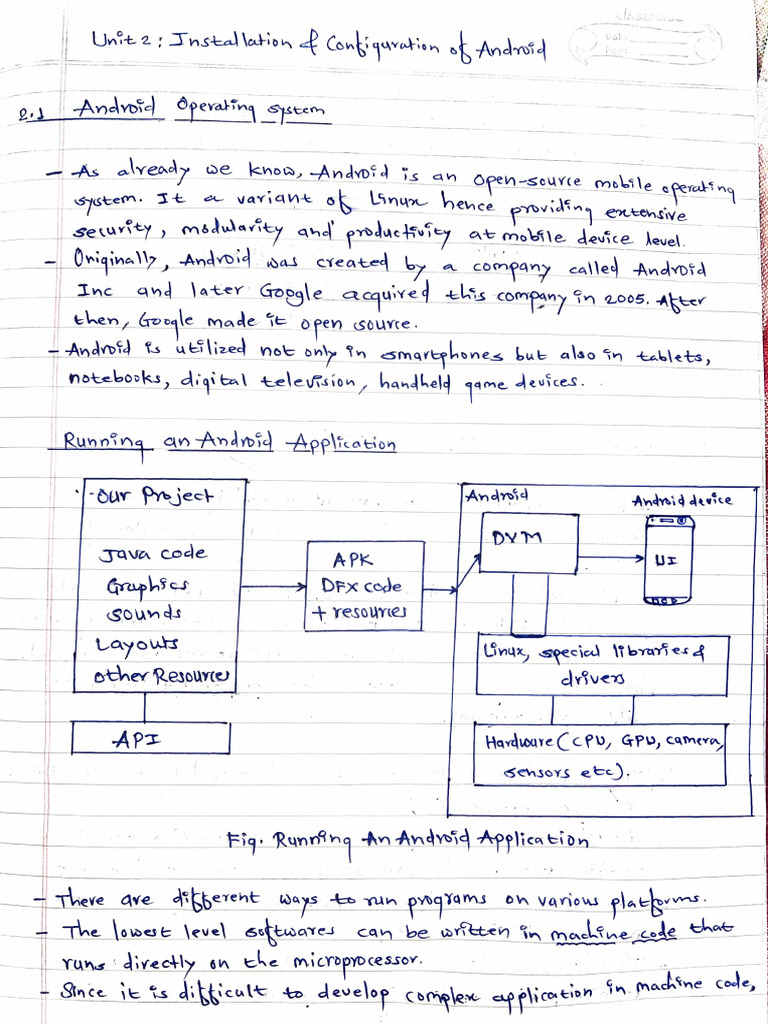 Unit 2: Installation & Configuration of Android
2.1 Android Operating System
- As already we know, Android is an open-source mobile operating
system. It a variant of Linux hence providing extensive
security, modularity and productivity at mobile device level.
- Originally, Android was created by a company called Android
Inc and later Google acquired this company in 2005. After
then, Google made it open source.
- Android is utilized not only in smartphones but also in tablets,
notebooks, digital television, handheld game devices.
Running an Android Application
Our Project
Java code
Graphics
Sounds
Layouts
Other Resources
API
APK
DFX code
+ resources
Android
Android device
DVM
UI
Linux, special libraries &
drivers
Hardware (CPU, GPU, camera,
sensors etc).
Fig. Running An Android Application
- There are different ways to run programs on various platforms.
- The lowest level softwares can be written in machine code that
runs directly on the microprocessor.
- Since it is difficult to develop complex application in machine code,